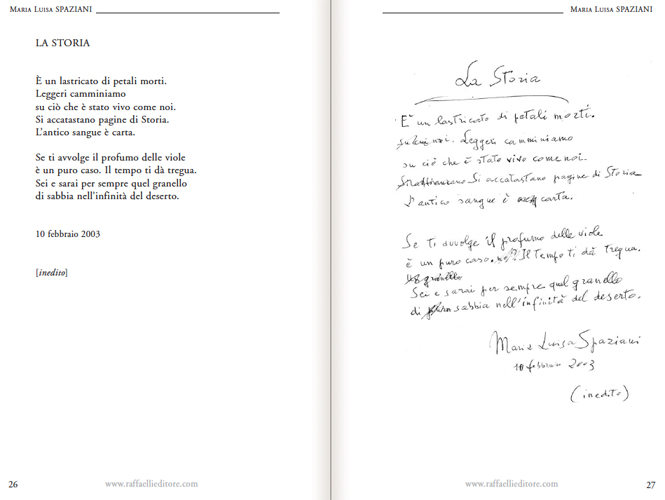 MARIA LUISA SPAZIANI
LA STORIA
È un lastricato di petali morti.
Leggeri camminiamo
su ciò che è stato vivo come noi.
Si accatastano pagine di Storia.
L'antico sangue è carta.
Se ti avvolge il profumo delle viole
è un puro caso. Il tempo ti dà tregua.
Sei e sarai per sempre quel granello
di sabbia nell'infinità del deserto.
10 febbraio 2003
[inedito]
26
www.raffaellieditore.com
MARIA LUISA SPAZIANI
La Storia
È un lastricato di petali morti.
Leggeri camminiamo
su ciò che è stato vivo come noi.
Si accatastano pagine di Storia
L'antico sangue è carta.
Se ti avvolge il profumo delle viole
è un puro caso. Il Tempo ti dà tregua.
Sei e sarai per sempre quel granello
di sabbia nell'infinità del deserto.
Maria Luisa Spaziani
10 febbraio 2003
(inedito)
www.raffaellieditore.com
27